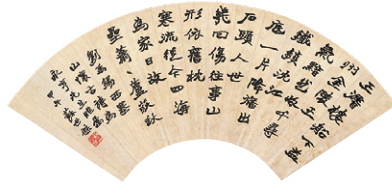 王濬樓船下益
州金陵王
氣黯然收千尋
鐵鎖沉江
底一片降幡出
石頭人世
幾回傷往事山
形依舊枕
寒流從今四海
為家日故
壘蕭蕭蘆荻秋
劉禹錫西塞
山懷古
甲午